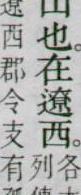 山也。在遼西。
各
列
西郡令支有